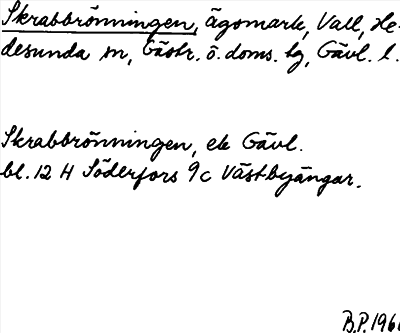 Skrabbrönningen, ägomark, Vall, He-
desunda sn, Gästr. ö. doms. tg, Gävl. l.
Skrabbrönningen, ek Gävl.
bl. 12 H Söderfors 9c Västbyängar.
B.P. 196